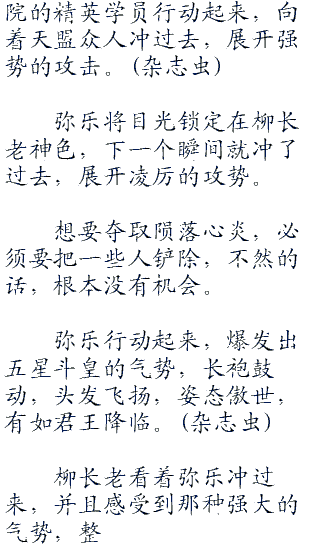 院的精英学员行动起来，向
着天盟众人冲过去，展开强
势的攻击。(杂志虫)
弥乐将目光锁定在柳长
老神色，下一个瞬间就冲了
过去，展开凌厉的攻势。
想要夺取陨落心炎，必
须要把一些人铲除，不然的
话，根本没有机会。
弥乐行动起来，爆发出
五星斗皇的气势，长袍鼓
动，头发飞扬，姿态傲世，
有如君王降临。(杂志虫)
柳长老看着弥乐冲过
来，并且感受到那种强大的
气势，整